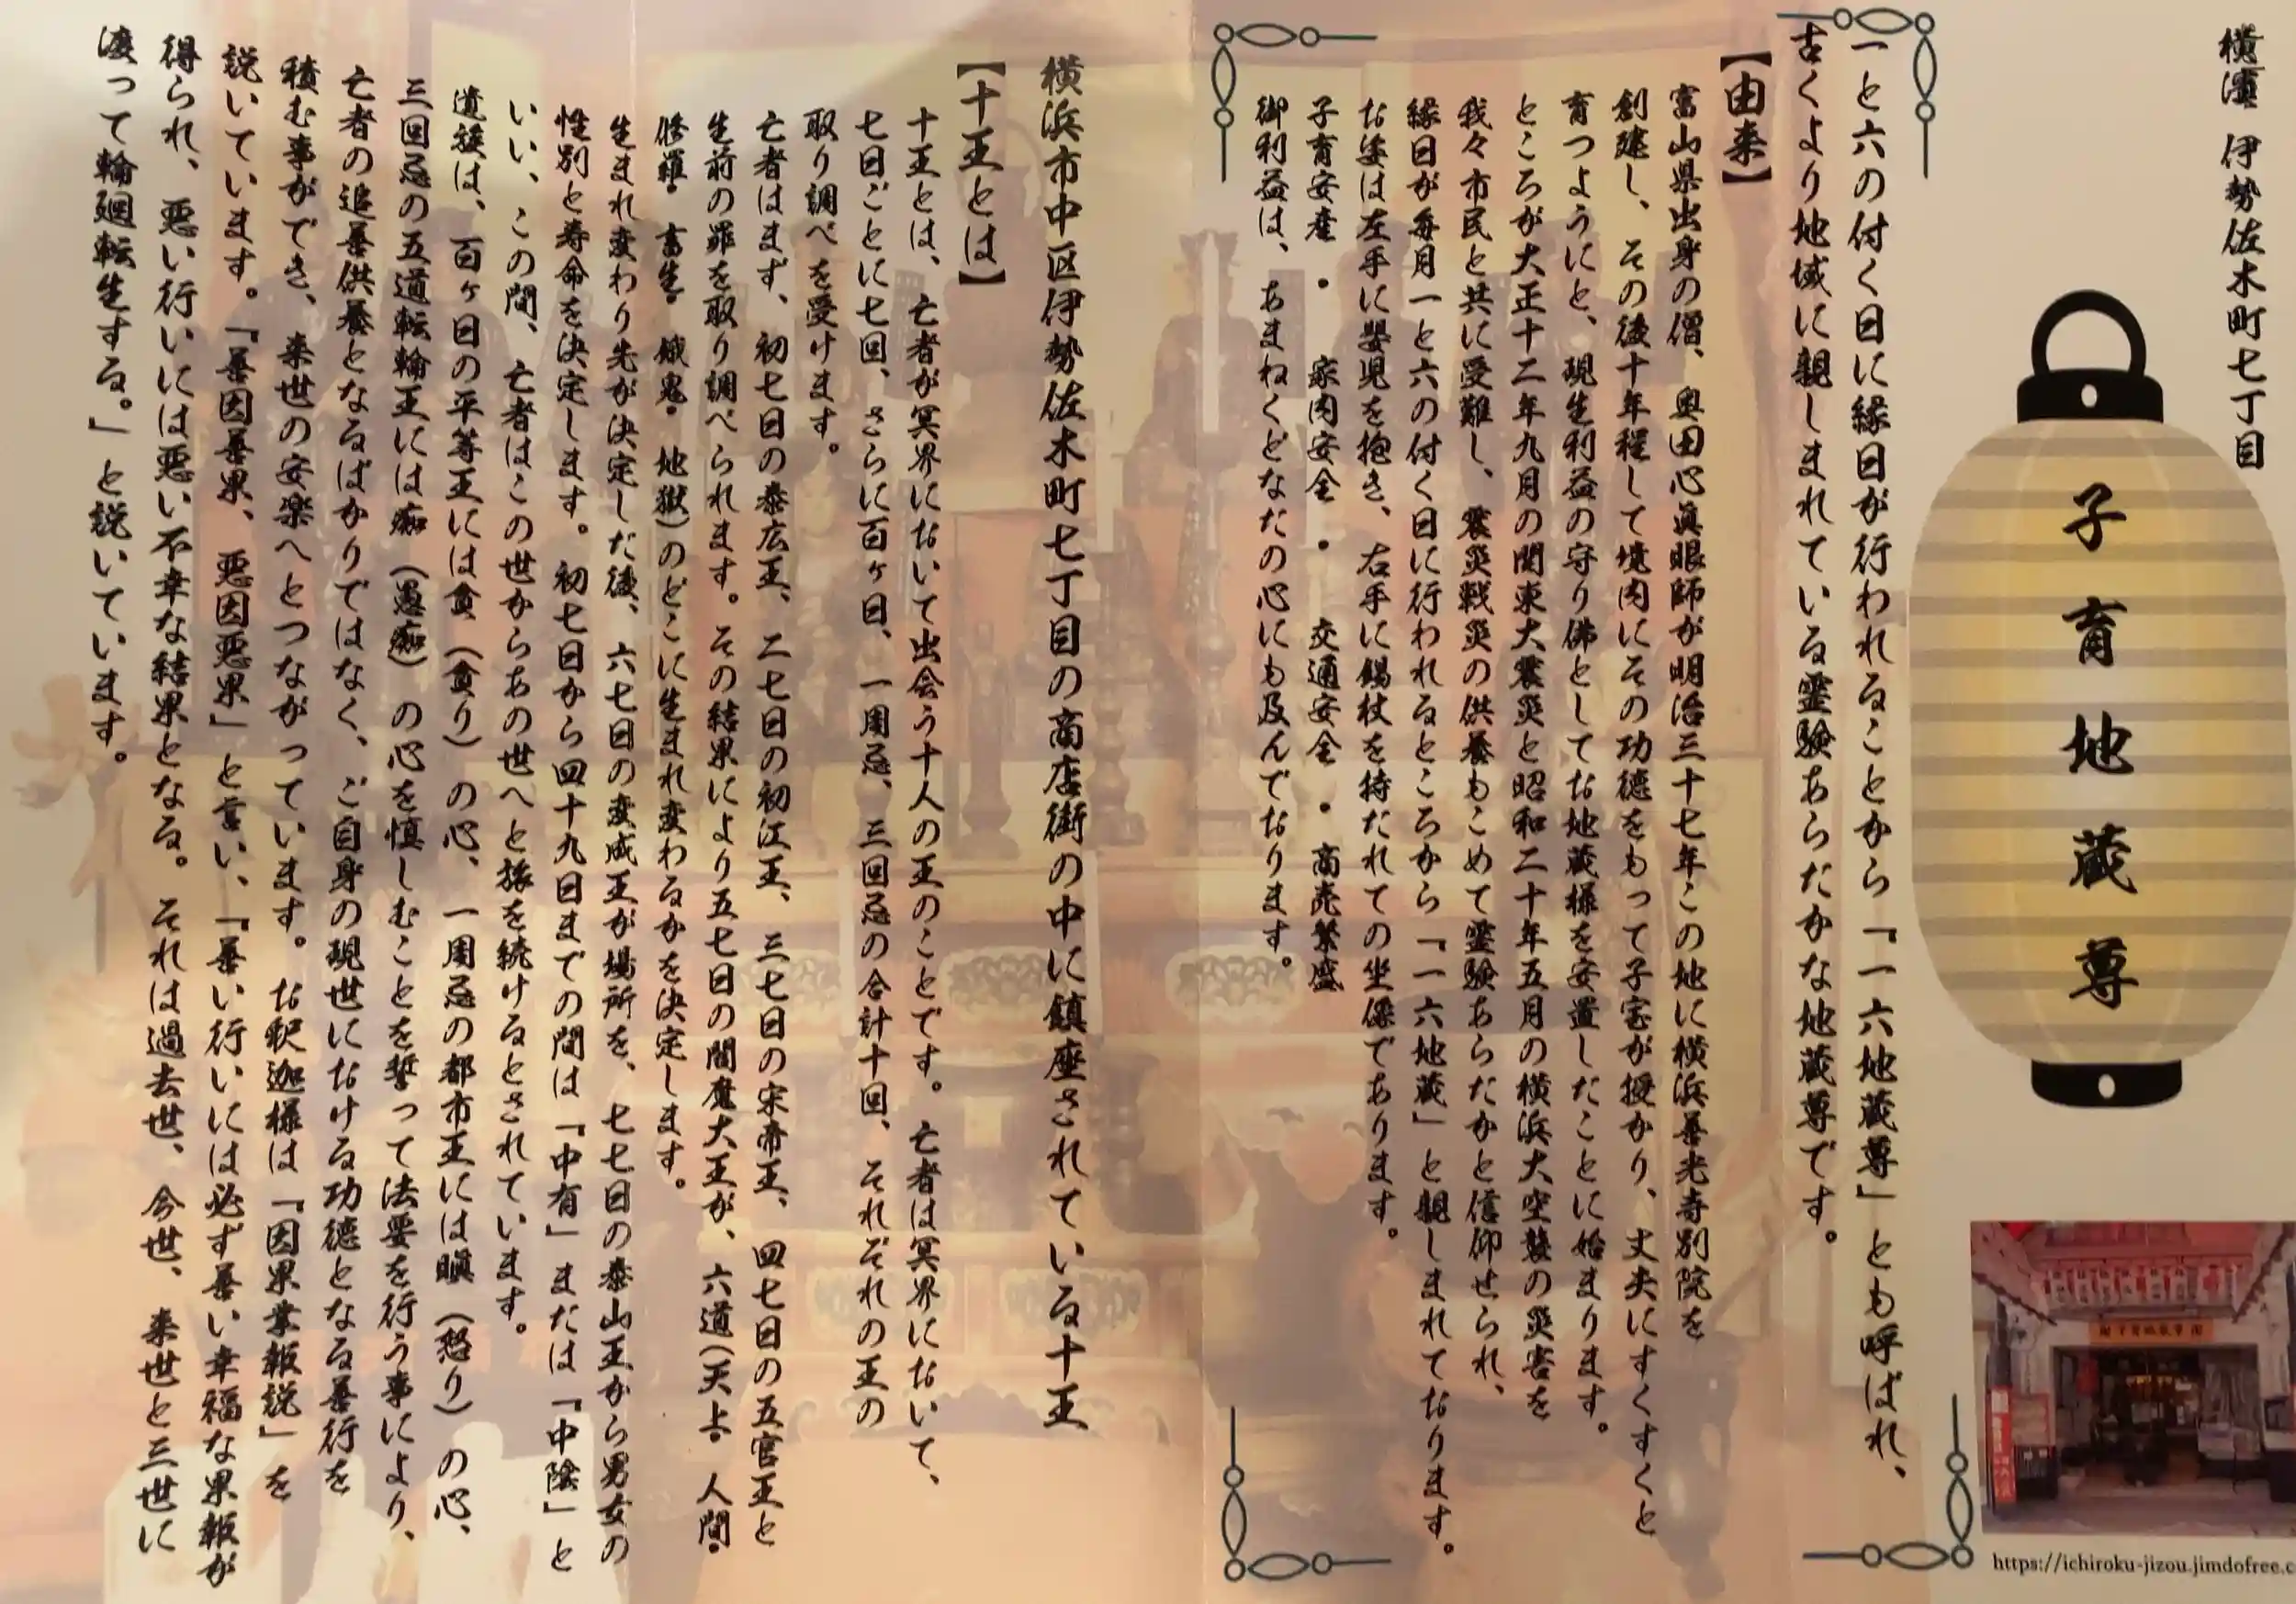 横濱 伊勢佐木町七丁目
子育地蔵尊
https://ichiroku-jizou.jimdofree.c
一と六の付く日に縁日が行われることから『一六地蔵尊』とも呼ばれ、
古くより地域に親しまれている霊験あらたかな地蔵尊です。
【由来】
富山県出身の僧、奥田心眞眼師が明治三十七年この地に横浜善光寺別院を
創建し、その後十年程して境内にその功徳をもって子宝が授かり、丈夫にすくすくと
育つようにと、現生利益の守り佛としてお地蔵様を安置したことに始まります。
ところが大正十二年九月の関東大震災と昭和二十年五月の横浜大空襲の災害を
我々市民と共に受難し、震災戦災の供養もこめて霊験あらたかと信仰せられ、
縁日が毎月一と六の付く日に行われるところから『一六地蔵』と親しまれております。
お姿は左手に嬰児を抱き、右手に錫杖を持たれての坐像であります。
子育安産 ・ 家内安全 ・ 交通安全 ・ 商売繁盛
御利益は、あまねくどなたの心にも及んでおります。
横浜市中区伊勢佐木町七丁目の商店街の中に鎮座されている十王
【十王とは】
十王とは、亡者が冥界において出会う十人の王のことです。亡者は冥界において、
七日ごとに七回、さらに百ヶ日、一周忌、三回忌の合計十回、それぞれの王の
取り調べを受けます。
亡者はまず、初七日の泰広王、二七日の初江王、三七日の宋帝王、四七日の五官王と
生前の罪を取り調べられます。その結果により五七日の閻魔大王が、六道(天上・人間・
修羅・畜生・餓鬼・地獄)のどこに生まれ変わるかを決定します。
生まれ変わり先が決定した後、六七日の変成王が場所を、七七日の泰山王から男女の
性別と寿命を決定します。初七日から四十九日までの間は『中有』または『中陰』と
いい、この間、亡者はこの世からあの世へと旅を続けるとされています。
遺族は、百ヶ日の平等王には貪(貪り)の心、一周忌の都市王には瞋(怒り)の心、
三回忌の五道転輪王には痴(愚痴)の心を慎しむことを誓って法要を行う事により、
亡者の追善供養となるばかりではなく、ご自身の現世における功徳となる善行を
積む事ができ、来世の安楽へとつながっています。お釈迦様は『因果業報説』を
説いています。『善因善果、悪因悪果』と言い、『善い行いには必ず善い幸福な果報が
得られ、悪い行いには悪い不幸な結果となる。それは過去世、今世、来世と三世に
渡って輪廻転生する。』と説いています。